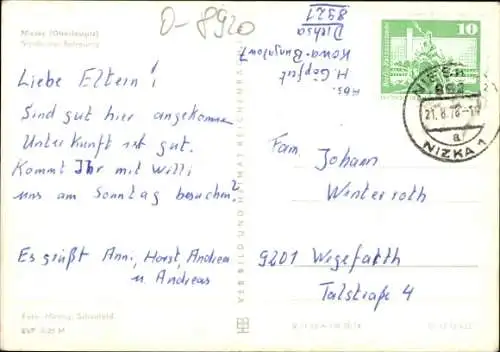 Niesky (Oberlausitz)
D-8920
Liebe Eltern!
Sind gut hier angekommen
Unterkunft ist gut.
Kommt Ihr mit Willi
uns am Sonntag besuchen?
Es grüßt Anni, Horst, Andrea
u. Andreas
Foto: Schönfeld
VERLAG BILD UND HEIMAT REICHENBACH
Abs.
H. Göpfert
Kowa-Bungalow 7
Diehsa
8921
10
21.8.78-
a
NIZKA 1
Fam. Johann
Winterroth
9201 Wegefarth
Talstraße 4